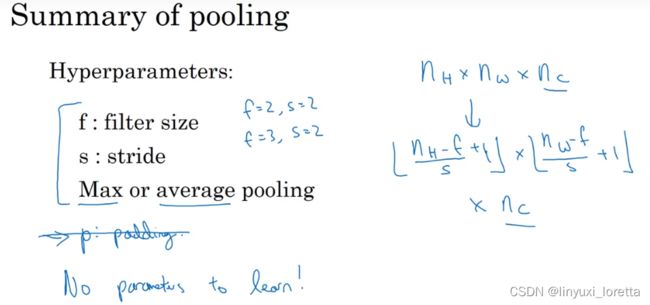 Summary of pooling
Hyperparameters:
f : filter size
s : stride
Max or average pooling
f=2, s=2
f=3, s=2
→ p: padding.
No parameters to learn!
n_H × n_W × n_C
↓
⌊(n_H-f)/s +1⌋ × ⌊(n_W-f)/s +1⌋
× n_C
CSDN @linyuxi_loretta